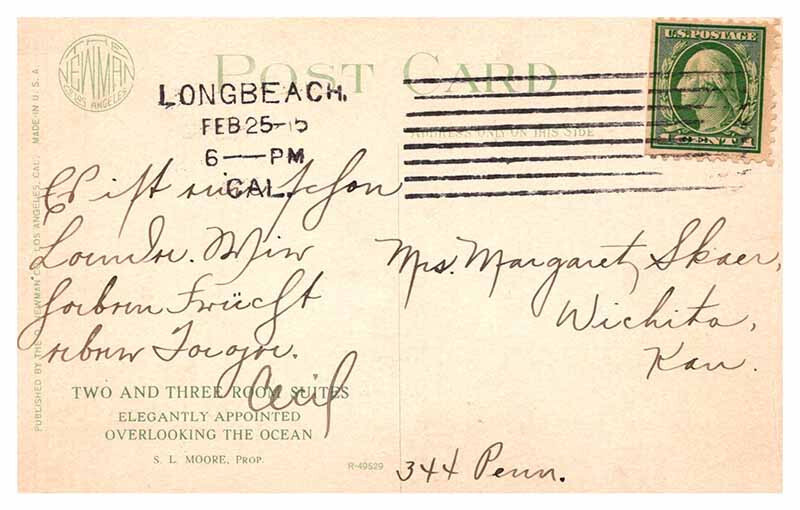 THE
NEWMAN
LOS ANGELES
POST CARD
U.S. POSTAGE
1 CENT 1
LONGBEACH.
FEB 25
6 — PM
CAL.
ADDRESS ONLY ON THIS SIDE
MADE IN U.S.A.
Es ist schon
Wir
haben Frücht
Cecil
Mrs. Margaret Skaer,
Wichita,
Kan.
344 Penn.
TWO AND THREE ROOM SUITES
ELEGANTLY APPOINTED
OVERLOOKING THE OCEAN
S. L. MOORE, PROP.
R-49529
PUBLISHED BY THE O. NEWMAN CO., LOS ANGELES, CAL.